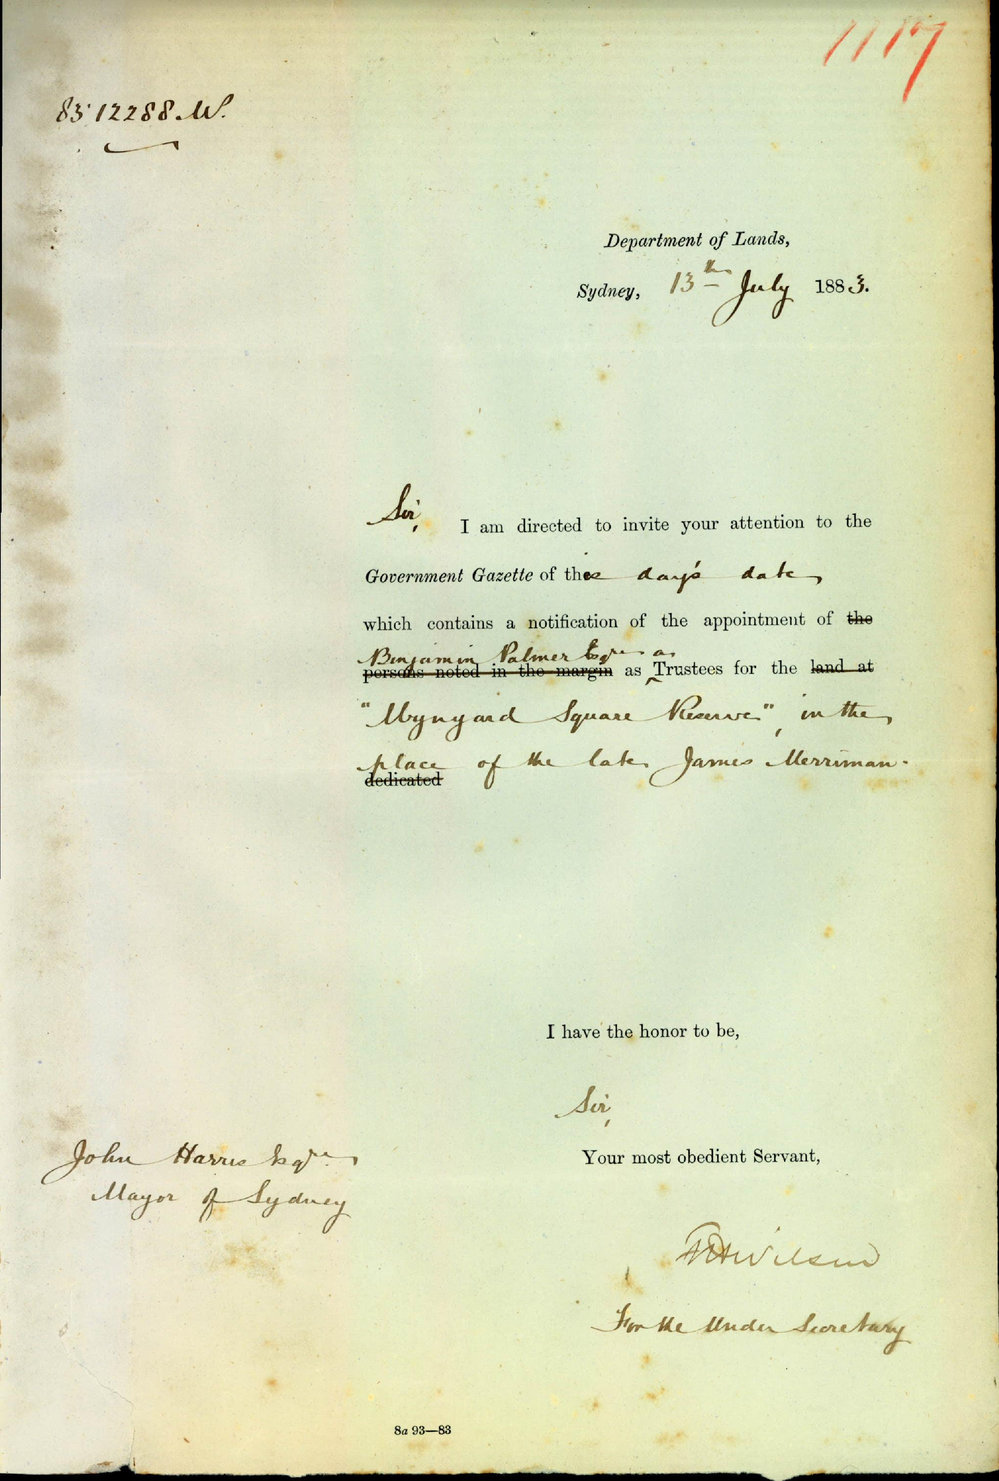 1117
83.12288 M.
Department of Lands,
Sydney, 13th July 1883.
Sir, I am directed to invite your attention to the
Government Gazette of this day's date,
which contains a notification of the appointment of the
Benjamin Palmer Esqre a
persons noted in the margin as Trustees for the land at
"Wynyard Square Reserve", in the
place of the late James Merriman.
dedicated
I have the honor to be,
Sir,
Your most obedient Servant,
John Harris Esqre
Mayor of Sydney
Wilson
For the Under Secretary
8a 93—83